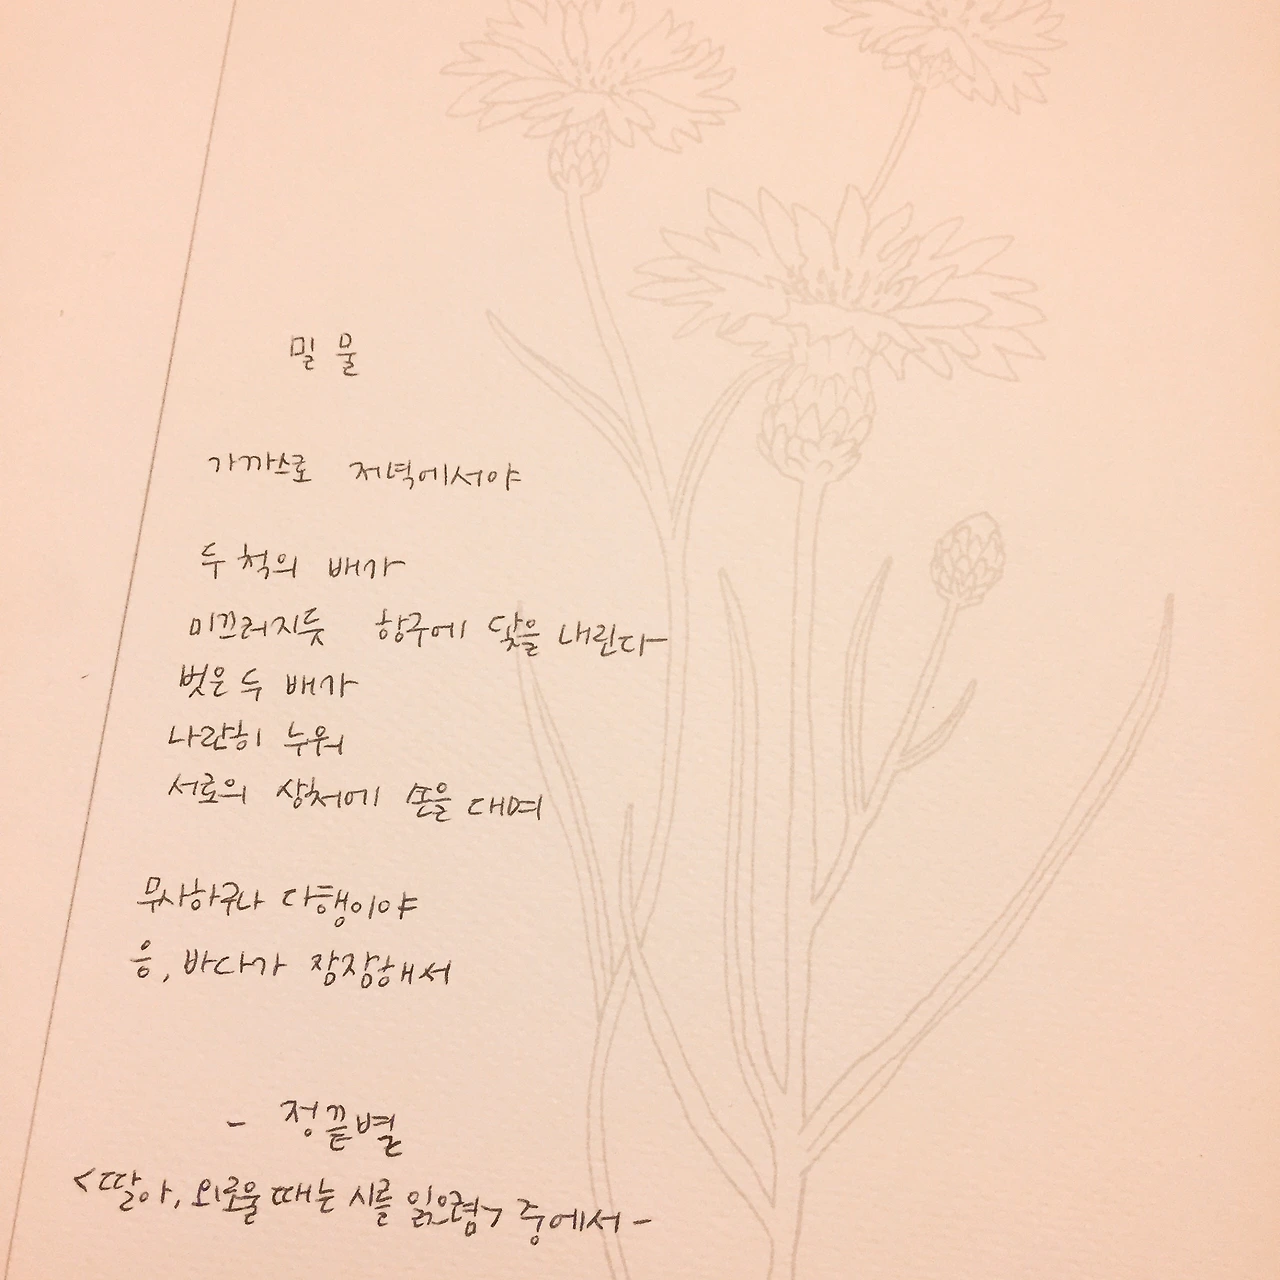 밀 물
가까스로 저녁에서야
두 척의 배가
미끄러지듯 항구에 닻을 내린다
벗은 두 배가
나란히 누워
서로의 상처에 손을 대며
무사하구나 다행이야
응, 바다가 잠잠해서
- 정끝별
<딸아, 외로울 때는 시를 읽으렴> 중에서 -